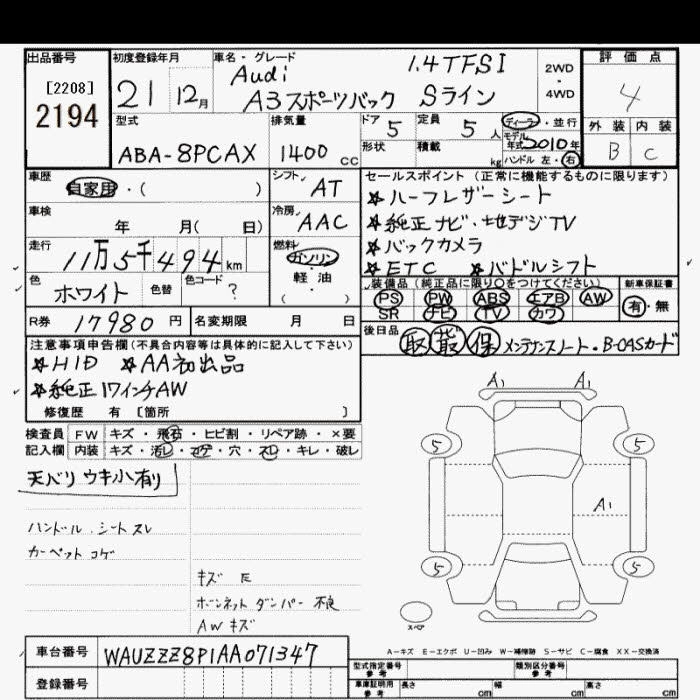 出品番号
[2208]
2194
初度登録年月
21 12月
車名・グレード
Audi 1.4TFSI
A3スポーツバック Sライン
2WD
・
4WD
評価点
4
外装 内装
B C
型式
ABA-8PCAX
排気量
1400 cc
ドア 5
定員 5人
形状
積載 kg
ディーラー・並行
モデル年式2010年
ハンドル 左・右
車歴
自家用・( )
シフト AT
車検
年 月( 日)
冷房 AAC
走行
11万5千494km
燃料
ガソリン
軽・油
( )
色
ホワイト
色替
色コード
?
R券 17980円
名変期限 月 日
セールスポイント(正常に機能するものに限ります)
☆ハーフレザーシート
☆純正ナビ・地デジTV
☆バックカメラ
☆ETC ☆パドルシフト
装備品(純正品に限り○をつけてください)
PS PW ABS エアB AW
SR ナビ TV カワ
新車保証書
有・無
後日品
取 能 保 メンテナンスノート・B-CASカード
注意事項申告欄(不具合内容等は具体的に記入して下さい)
☆HID ☆AA初出品
☆純正17インチAW
修復歴 有 [箇所 ]
検査員
記入欄
FW キズ・飛石・ヒビ割・リペア跡・×要
内装 キズ・汚レ・コゲ・穴・スレ・キレ・破レ
天バリウキ小有り
ハンドル.シートスレ
カーペットコゲ
キズ E
ボンネットダンパー不良
AWキズ
A1 A1
5 5
A1
5 5
スペア
A-キズ E-エクボ U-凹み W-補修跡 S-サビ C-腐食 XX-交換済
車台番号 WAUZZZ8P1AA071347
登録番号
型式指定番号
参考
類別区分番号
参考
車庫証明用
参考
長さ cm 幅 cm 高さ cm